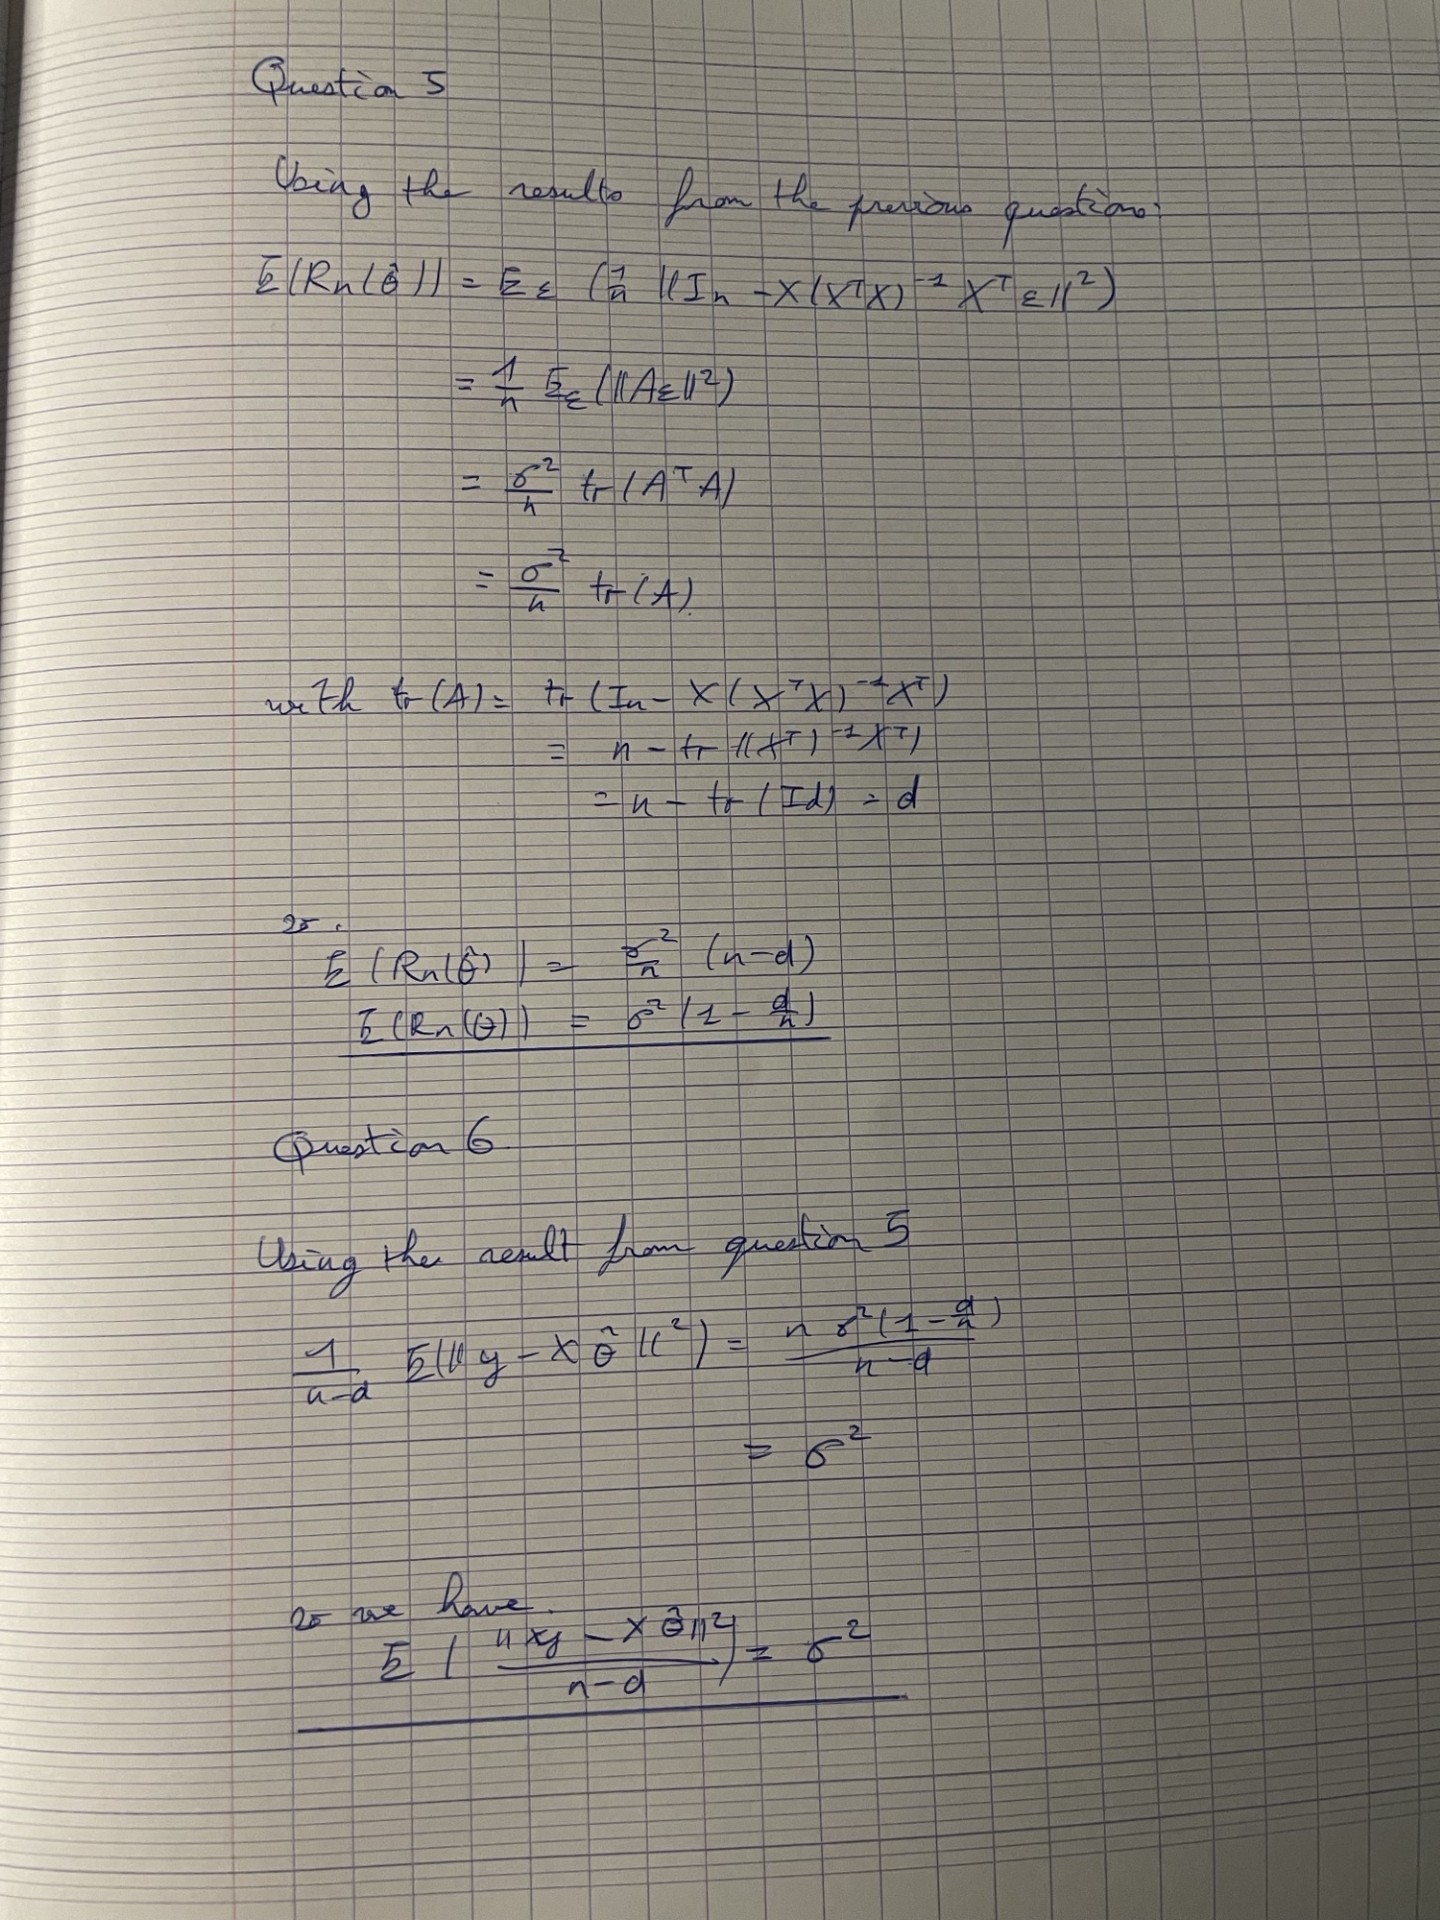 Question 5
Using the results from the previous questions:
E(Rn(θ̂)) = E_ε (1/n ||(In - X(XᵀX)⁻¹ Xᵀ ε||²)
= 1/n E_ε (||Aε||²)
= σ²/n tr(AᵀA)
= σ²/n tr(A).
with tr(A) = tr(In - X(XᵀX)⁻¹Xᵀ)
= n - tr((Xᵀ)⁻¹Xᵀ)
= n - tr(Id) = d
so.
E(Rn(θ̂)) = σ²/n (n-d)
E(Rn(θ)) = σ²(1 - d/n)
Question 6
Using the result from question 5
1/(n-d) E(||y - Xθ̂||²) = n σ²(1 - d/n)/(n-d)
= σ²
so we have.
E(||Xy - Xθ̂||²/(n-d)) = σ²